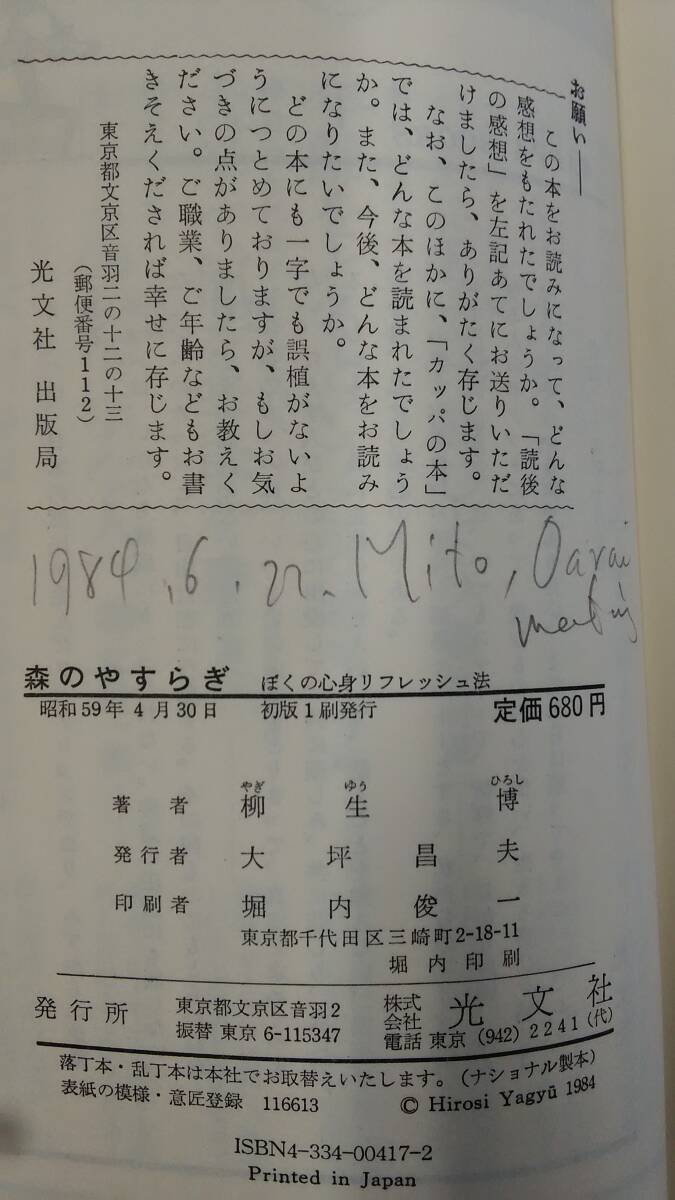 お願い――
この本をお読みになって、どんな
感想をもたれたでしょうか。「読後
の感想」を左記あてにお送りいただ
けましたら、ありがたく存じます。
なお、このほかに、「カッパの本」
では、どんな本を読まれたでしょう
か。また、今後、どんな本をお読み
になりたいでしょうか。
どの本にも一字でも誤植がないよ
うにつとめておりますが、もしお気
づきの点がありましたら、お教えく
ださい。ご職業、ご年齢などもお書
きそえくだされば幸せに存じます。
東京都文京区音羽二の十二の十三
(郵便番号112)
光文社 出版局
1984.6.22. Mito, Oarai
森のやすらぎ ぼくの心身リフレッシュ法
昭和59年4月30日 初版1刷発行 定価680円
やぎ ゆう ひろし
著者 柳生博
発行者 大坪昌夫
印刷者 堀内俊一
東京都千代田区三崎町2-18-11
堀内印刷
発行所 東京都文京区音羽2 株式会社 光文社
振替 東京 6-115347 電話 東京 (942) 2241 (代)
落丁本・乱丁本は本社でお取替えいたします。(ナショナル製本)
表紙の模様・意匠登録 116613 © Hirosi Yagyū 1984
ISBN4-334-00417-2
Printed in Japan